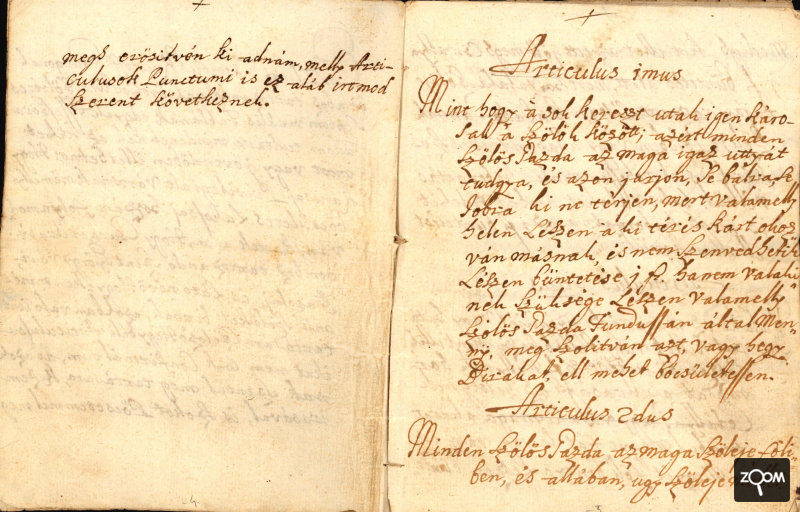 megs erösitvén ki-adnám, melly Arti-
culusok Punctumi is ez-aláb irt mod
szerent következnek.
4
Articulus 1mus
Mint hogy a' sok kereszt utak igen káro-
sak a' szölök között; azért minden
szölös Gazda az maga igaz uttyát
tudgya, és azon járjon, se balra, se
Jobra ki ne térjen, mert valamelly
helen Lészen a ki térés kárt okoz
ván másnak, és nem szenvedhetik
Lészen büntetése j f. hanem valaki
nek szüksége Lészen valamelly
szölös Gazda Fundussán által Men-
nÿ, meg szolitván azt, vagy hegy
Birákat, ell mehet böcsületessen.
Articulus 2dus
Minden szölös Gazda az maga szöleje föli
ben, és allában, ugy szöleje
ZOOM